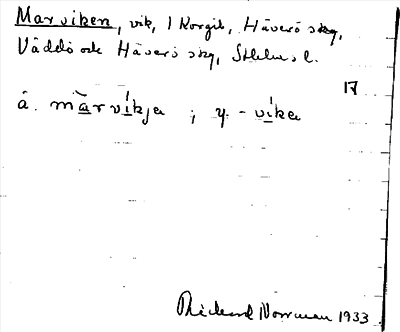 Marviken, vik, i Korgil, Häverö skg,
Väddö och Häverö skg, Sthlms l.
17
å. màrvíkja ; y. -víka
Rickard Norrman 1933